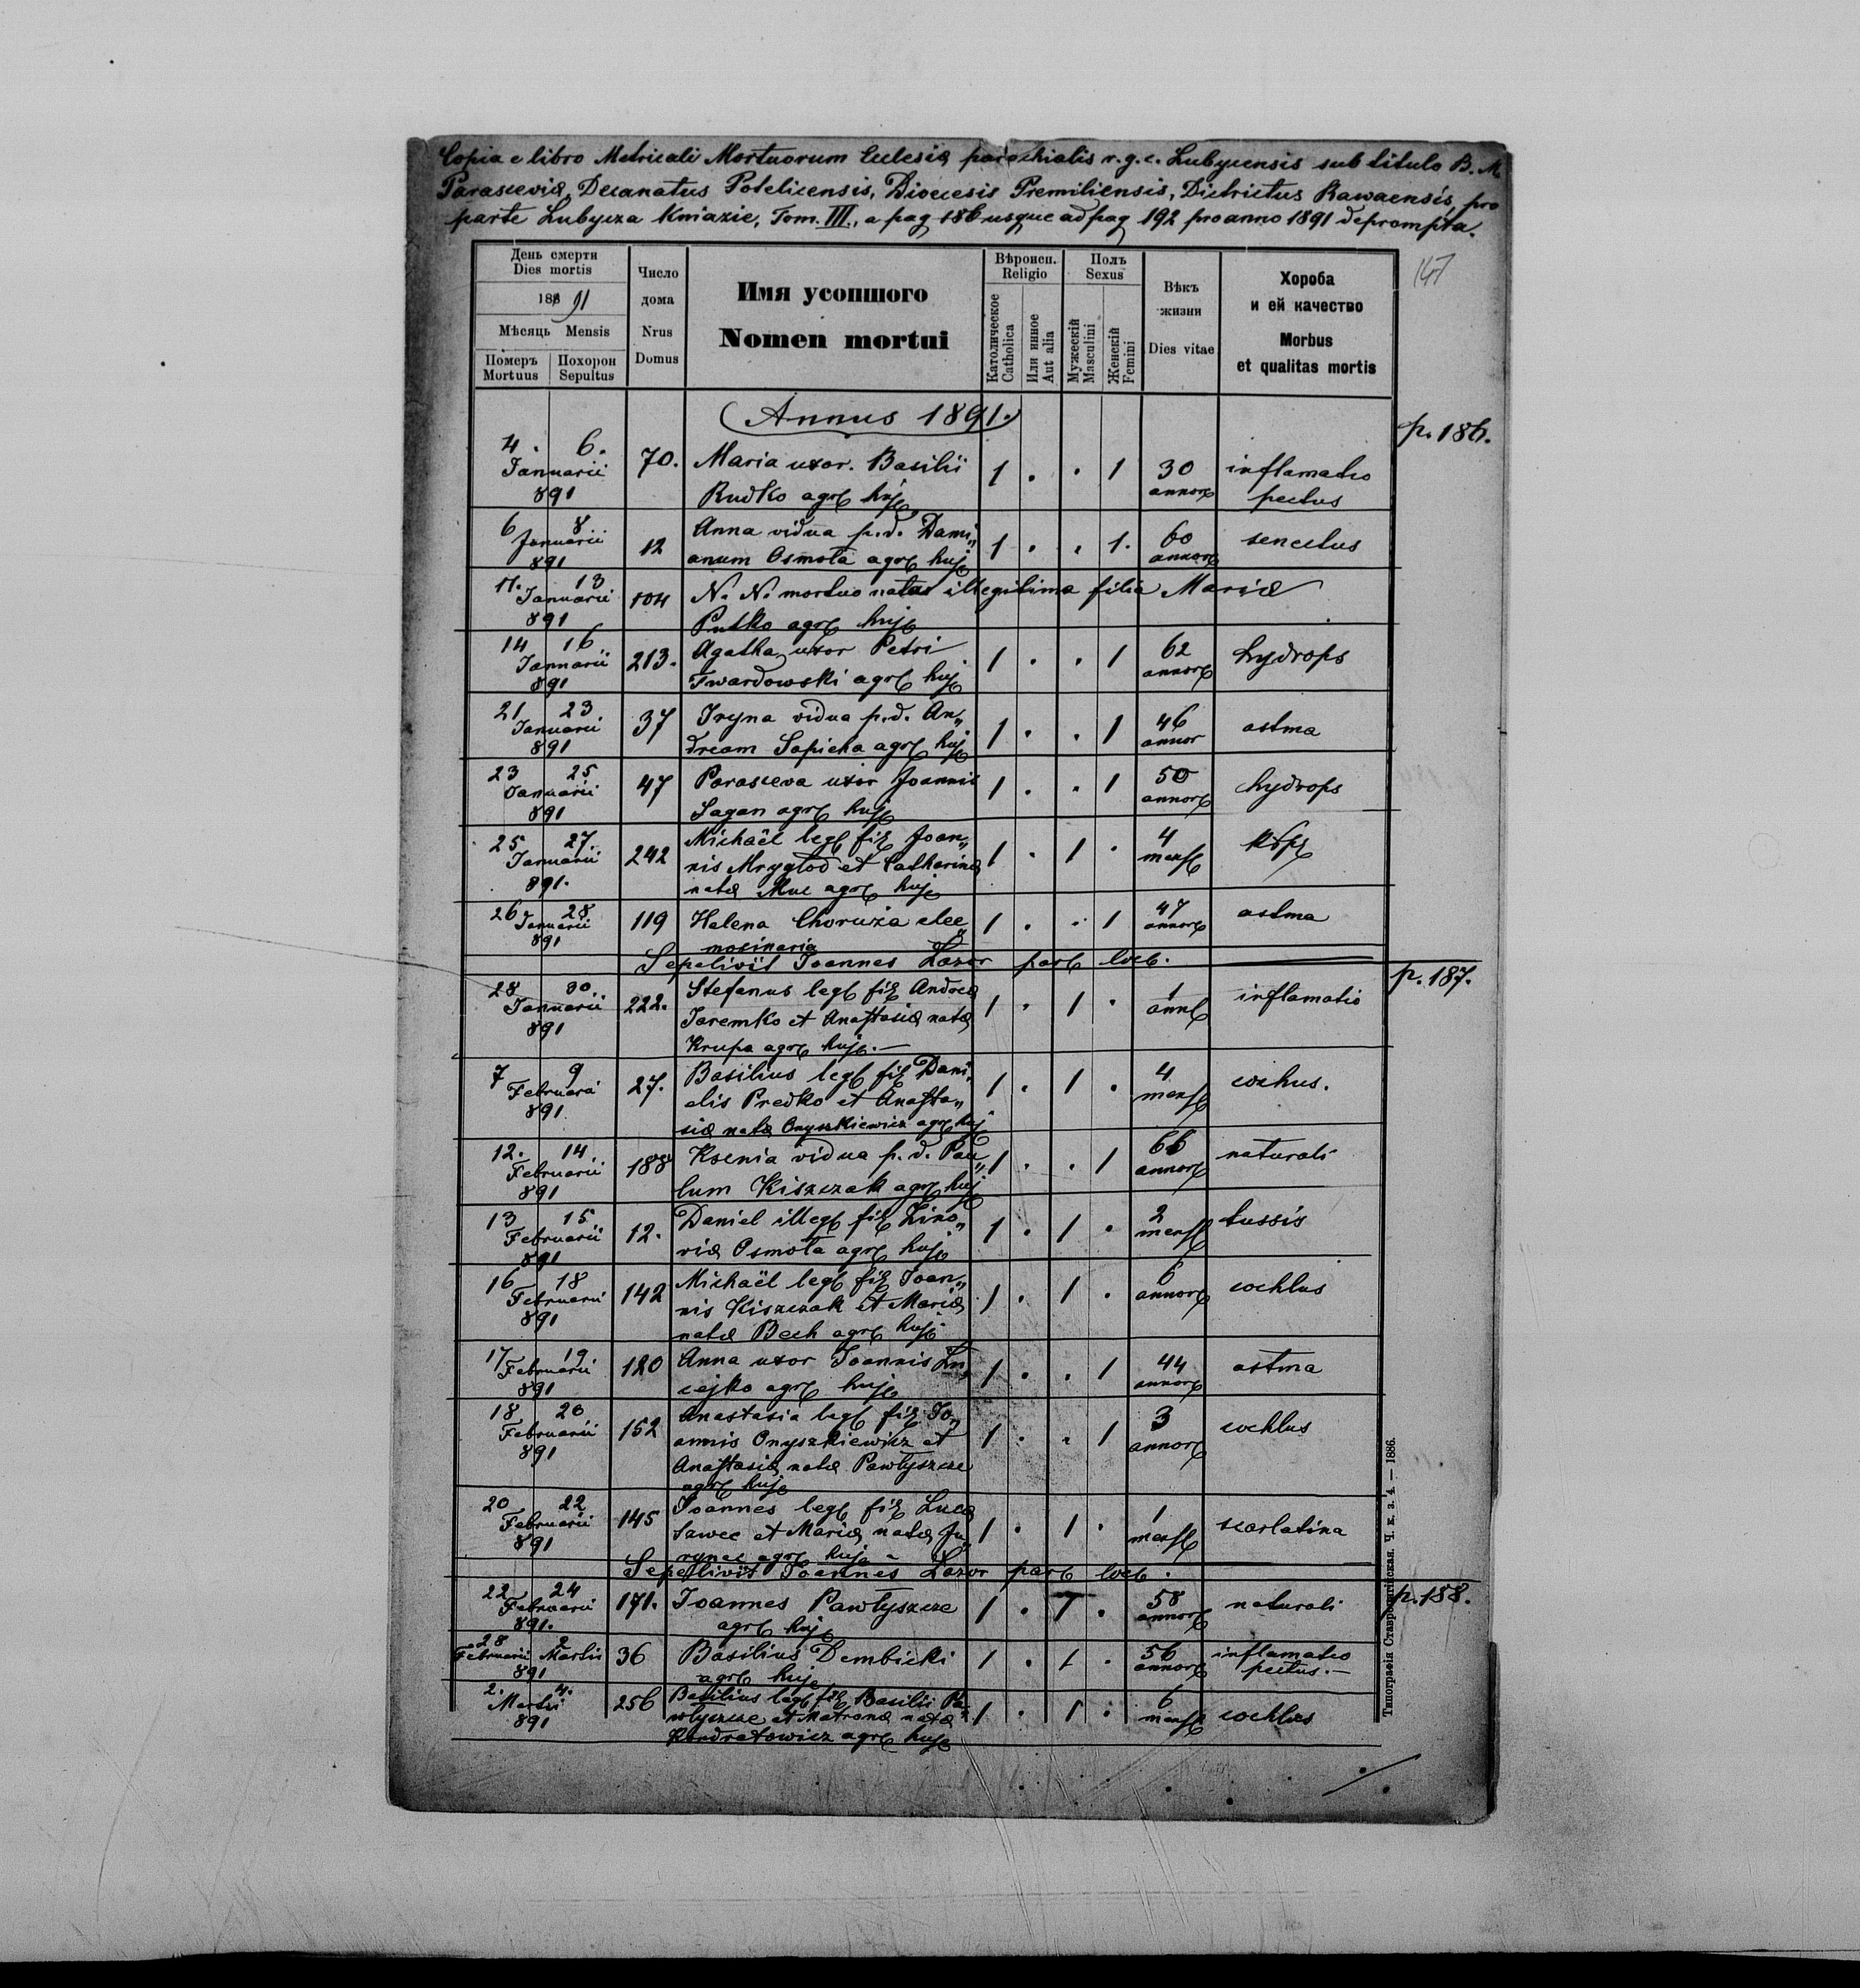 Copia e libro Metricali Mortuorum Ecclesiæ parochialis r.g.c. Lubycensis sub titulo B. M.
Parasceviæ, Decanatus Potelicensis, Dioecesis Premiliensis, Districtus Rawaensis, pro
parte Lubycza Kniazie, Tom. III., a pag 186 usque ad pag 192 pro anno 1891 deprompta.
147
День смерти
Dies mortis
188 91
Мѣсяць Mensis
Померъ Mortuus
Похорон Sepultus
Число дома
Nrus Domus
Имя усопшого
Nomen mortui
Вѣроисп.
Religio
Католическое Catholica
Или инное Aut alia
Полъ
Sexus
Мужескій Masculini
Женскій Femini
Вѣкъ жизни
Dies vitae
Хороба
и ей качество
Morbus
et qualitas mortis
Annus 1891.
p. 186.
4. 6. Januarii 891 70. Maria uxor. Basilii 1 . . 1 30 annor inflamatio pectus
Rudko agr huj
6 8 Januarii 891 12 Anna vidua p.d. Dami„ 1 . . 1. 60 annor senectus
anum Osmota agr huj
11. 13 Januarii 891 104 N. N. mortuo natus illegitima filia Mariæ
Putko agr huj
14 16 Januarii 891 213. Agatha uxor Petri 1 . . 1 62 annor hydrops
Twardowski agr huj
21 23 Januarii 891 37 Iryna vidua p.d. An„ 1 . . 1 46 annor astma
dream Sapieha agr huj
23 25 Januarii 891 47 Parasceva uxor Joannis 1 . . 1 50 annor hydrops
Sagan agr huj
25 27. Januarii 891. 242 Michaël leg fil Joan„ 1 . 1 . 4 mens
nis Mrygłod et Catharinæ
natæ Muc agr huj
26 28 Januarii 891 119 Helena Choruża elee„ 1 . . 1 47 annor astma
mosinaria
Sepelivit Joannes Lazor par loc.
p. 187.
28 30 Januarii 891 222. Stefanus leg fil Andreæ 1 . 1 . 1 ann inflamatio
Jaremko et Anastasiæ natæ
Krupa agr huj. —
7 9 Februarii 891 27. Basilius leg fil Dani„ 1 . 1 . 4 mens cochus.
elis Predko et Anasta„
siæ natæ Onyszkiewicz agr huj
12. 14 Februarii 891 188 Ksenia vidua p. d. Pau„ 1 . . 1 66 annor naturali
lum Kiszczak agr huj
13 15 Februarii 891 12. Daniel illeg fil Zino„ 1 . 1 . 2 mens tussis
viæ Osmota agr huj
16 18 Februarii 891 142 Michaël leg fil Joan„ 1 . 1 . 6 annor cochlus
nis Kiszczak et Mariæ
natæ Bech agr huj
17 19 Februarii 891 120 Anna uxor Joannis Lu„ 1 . . 1 44 annor astma
cejko agr huj
18 20 Februarii 891 152 Anastasia leg fil Jo„ 1 . . 1 3 annor cochlus
annis Onyszkiewicz et
Anastasiæ natæ Pawłyszcze
agr huj
20 22 Februarii 891 145 Joannes leg fil Lucæ 1 . 1 . 1 mens scarlatina
Sawec et Mariæ natæ Ju„
rynec agr huj
Sepelivit Joannes Lazor par loc.
p. 188.
22 24 Februarii 891. 171. Joannes Pawłyszcze 1 . 1 . 58 annor naturali
agr huj
28 Februarii 2 Martii 891 36 Basilius Dembicki 1 . 1 . 56 annor inflamatio pectus. —
agr huj
2. 4. Martii 891 256 Basilius leg fil Basilii Pa„ 1 . 1 . 6 mens cochlus
włyszcze et Matronæ natæ
Kondratowicz agr huj
Типографія Ставропигійская. Ч. к. з. 4. — 1886.